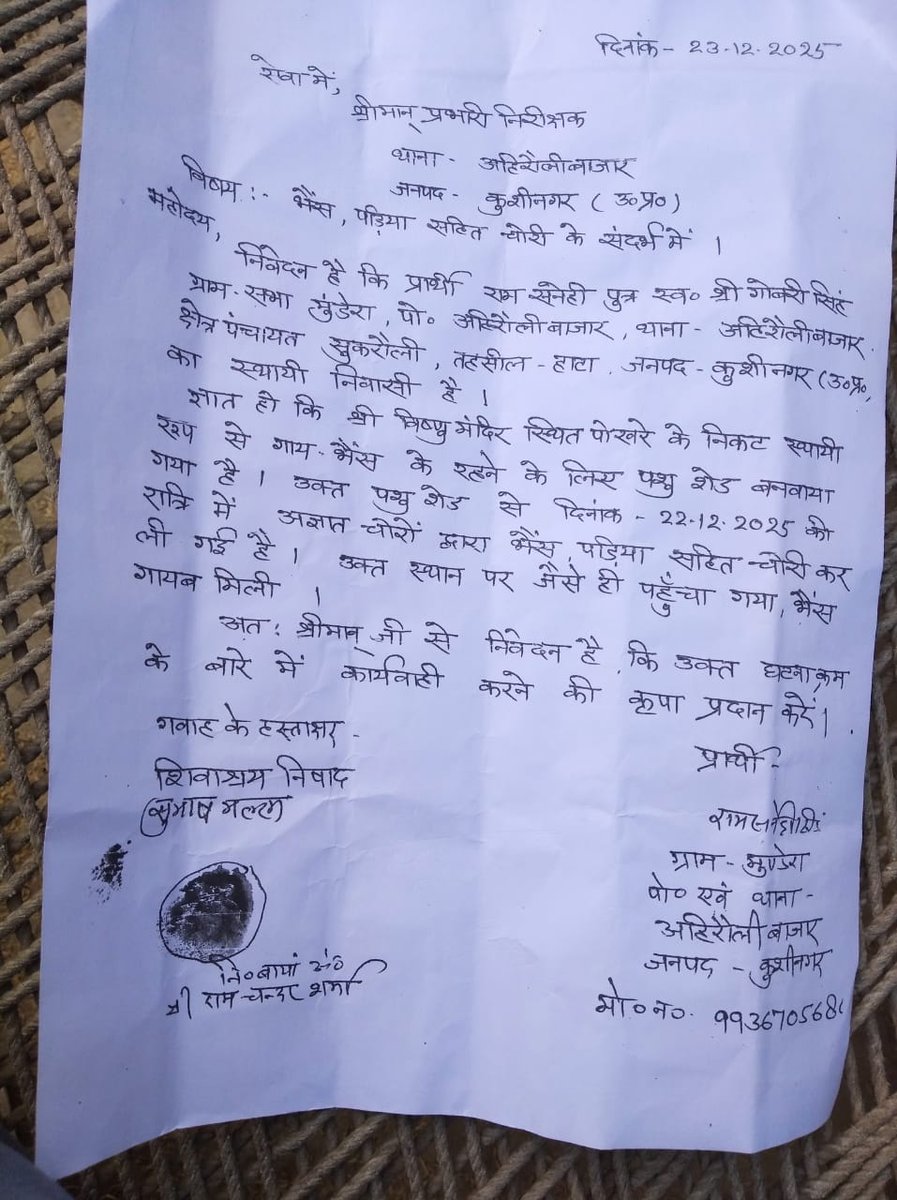 दिनांक - 23-12-2025
सेवा में,
श्रीमान् प्रभारी निरीक्षक
थाना - अहिरौलीबाजार
जनपद - कुशीनगर ( उ०प्र०)
विषय :- भैंस, पड़िया सहित चोरी के संदर्भ में ।
महोदय,
निवेदन है कि प्रार्थी राम सनेही पुत्र स्व० श्री गोबरी सिंह
ग्राम - सभा मुंडेरा, पो० अहिरौलीबाजार, थाना - अहिरौलीबाजार
क्षेत्र पंचायत सुकरौली, तहसील - हाटा, जनपद - कुशीनगर (उ०प्र०,
का स्थायी निवासी है ।
ज्ञात हो कि श्री विष्णु मंदिर स्थित पोखरे के निकट स्थायी
रूप से गाय - भैंस के रहने के लिए पशु शेड बनवाया
गया है । उक्त पशु शेड से दिनांक - 22-12-2025 की
रात्रि में अज्ञात चोरों द्वारा भैंस, पड़िया सहित चोरी कर
ली गई है । उक्त स्थान पर जैसे ही पहुँचा गया, भैंस
गायब मिली ।
अत: श्रीमान् जी से निवेदन है कि उक्त घटनाक्रम
के बारे में कार्यवाही करने की कृपा प्रदान करें।
गवाह के हस्ताक्षर -
शिवाश्रय निषाद
सुभाष मल्ल
नि० बायां अं०
श्री राम चन्दर शर्मा
प्रार्थी -
ग्राम - मुण्डेरा
पो० एवं थाना -
अहिरौली बाजार
जनपद - कुशीनगर
मो० न०